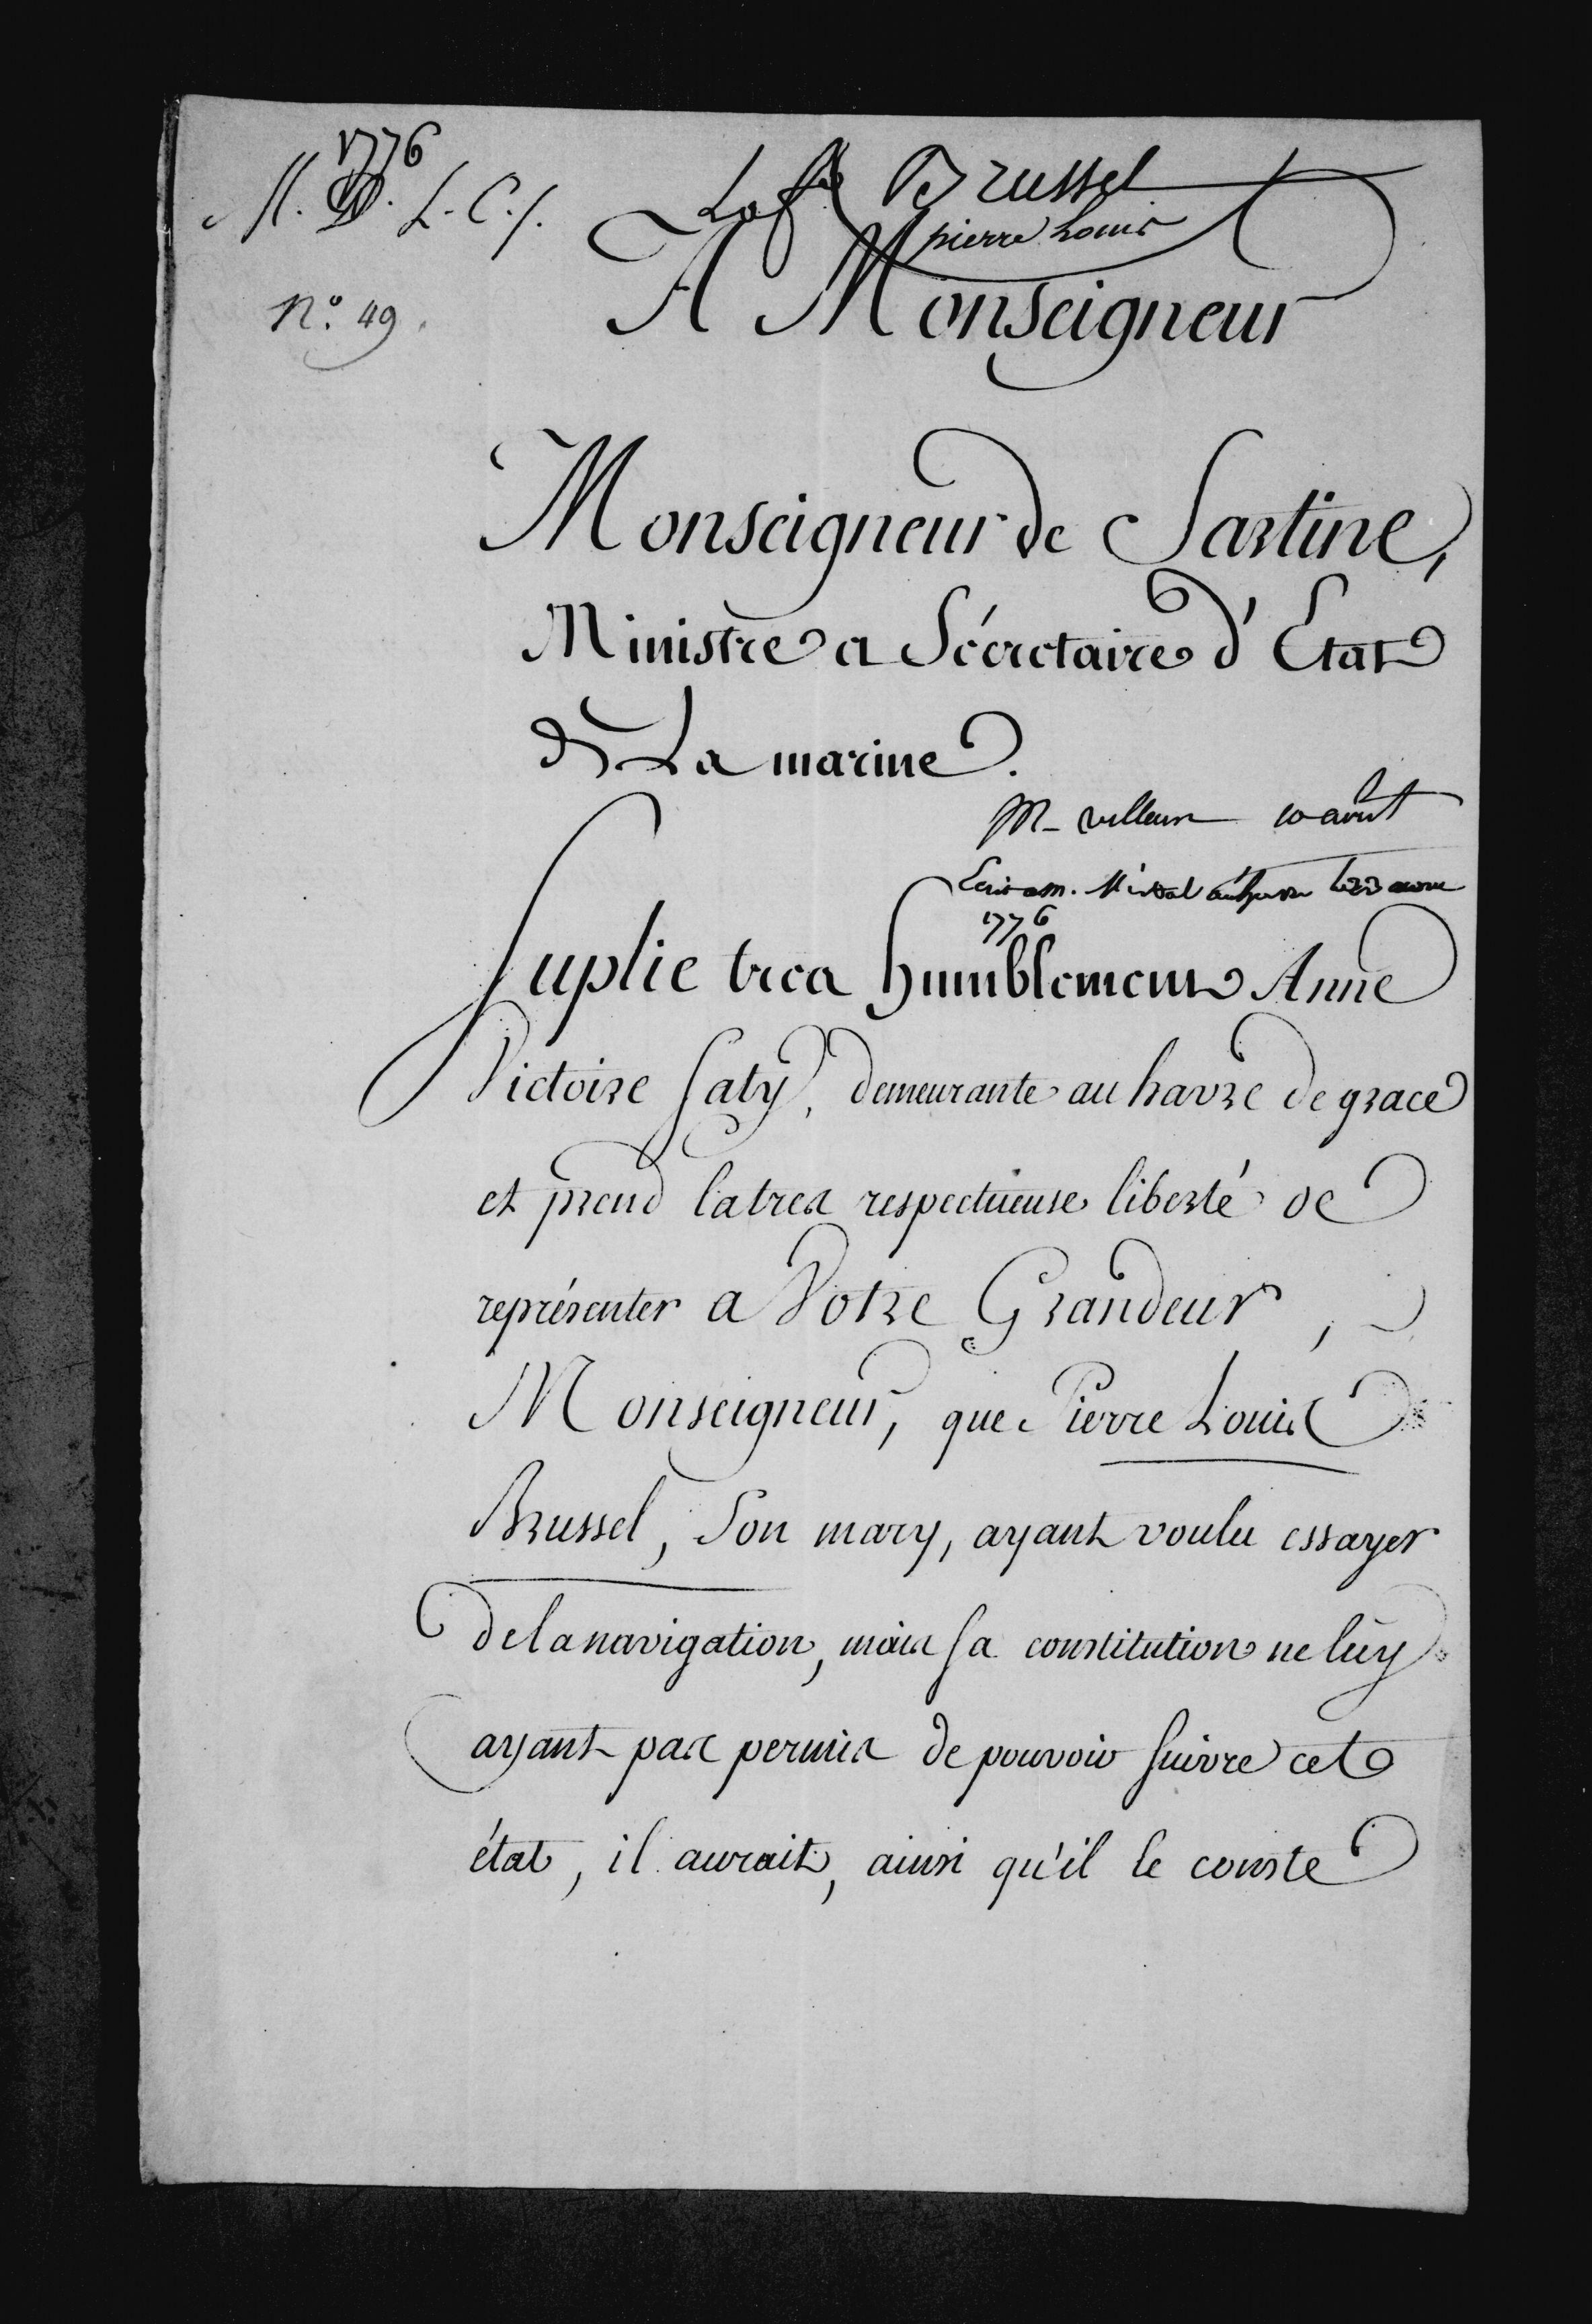 1776
M. D. L. C. /.
La fe Brussel
pierre Louis
N.º 49.
A Monseigneur
Monseigneur de Sartine,
Ministre et Sécretaire d'Etat
de La marine.
M. 10 août
Ecrit a M. le 23 aout
1776
Suplie tres humblement Anne
Victoire Saty, demeurante au havre de grace
et prend la tres respectueuse liberté de
représenter a Votre Grandeur,
Monseigneur, que Pierre Louis
Brussel, Son mary, ayant voulu essayer
de la navigation, mais sa constitution ne luy
ayant pas permis de pouvoir suivre cet
état, il aurait, ainsi qu'il le conste